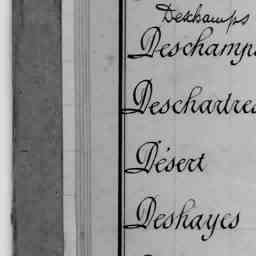 Deschamps
Deschamps
Deschartres
Désert
Deshayes